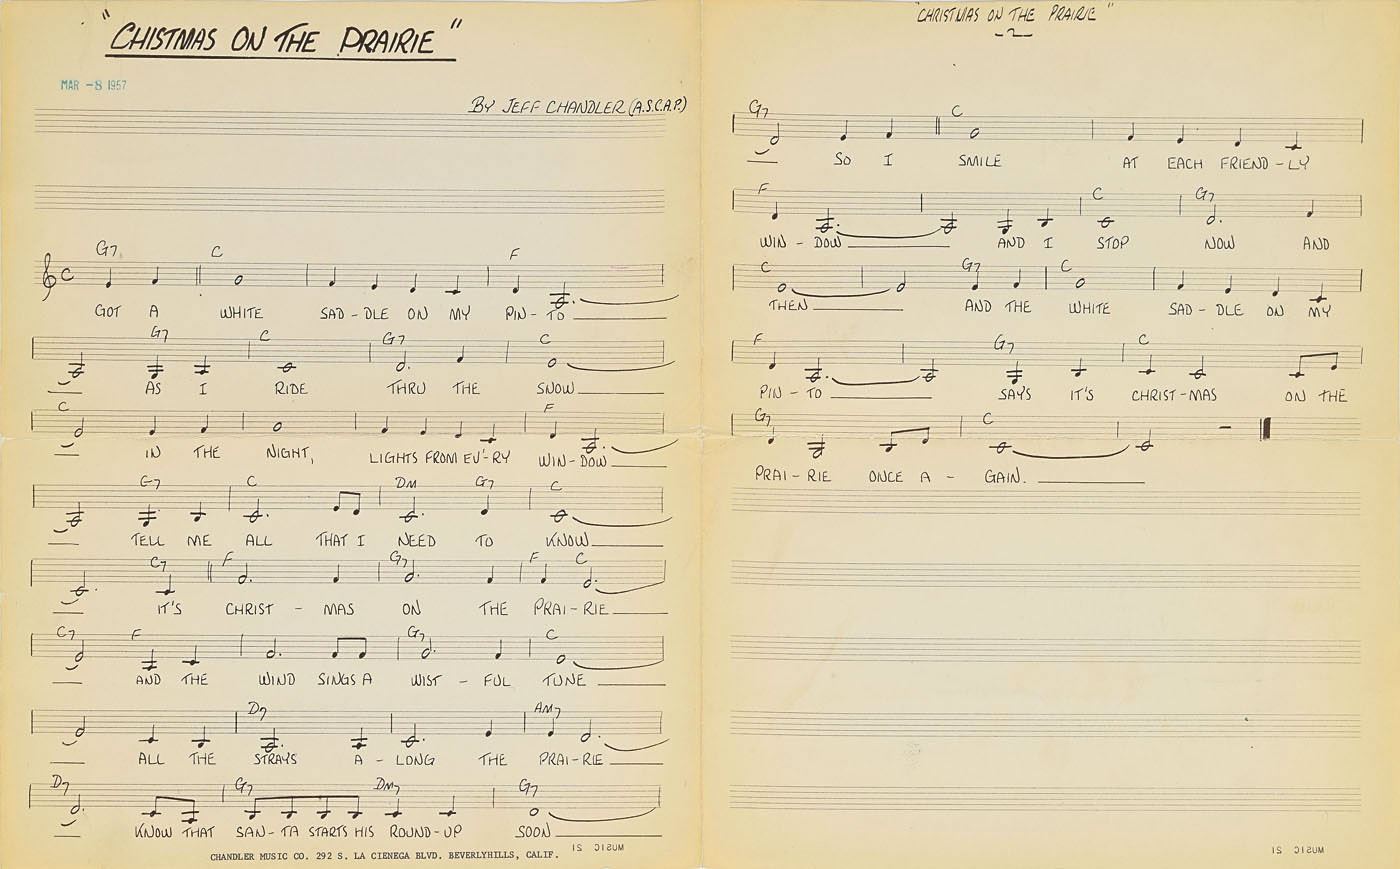 "CHISTMAS ON THE PRAIRIE"
MAR -8 1957
BY JEFF CHANDLER (A.S.C.A.P.)
G7 C F
GOT A WHITE SAD-DLE ON MY PIN-TO
G7 C G7 C
AS I RIDE THRU THE SNOW
C F
IN THE NIGHT, LIGHTS FROM EV'-RY WIN-DOW
G7 C DM G7 C
TELL ME ALL THAT I NEED TO KNOW
C7 F G7 F C
IT'S CHRIST - MAS ON THE PRAI-RIE
C7 F G7 C
AND THE WIND SINGS A WIST - FUL TUNE
D7 AM7
ALL THE STRAYS A - LONG THE PRAI-RIE
D7 G7 DM7 G7
KNOW THAT SAN-TA STARTS HIS ROUND-UP SOON
CHANDLER MUSIC CO. 292 S. LA CIENEGA BLVD. BEVERLYHILLS, CALIF.
MUSIC 21
"CHRISTMAS ON THE PRAIRIE"
-2-
G7 C
SO I SMILE AT EACH FRIEND-LY
F C G7
WIN-DOW AND I STOP NOW AND
C G7 C
THEN AND THE WHITE SAD-DLE ON MY
F G7 C
PIN-TO SAYS IT'S CHRIST-MAS ON THE
G7 C
PRAI-RIE ONCE A - GAIN.
MUSIC 21